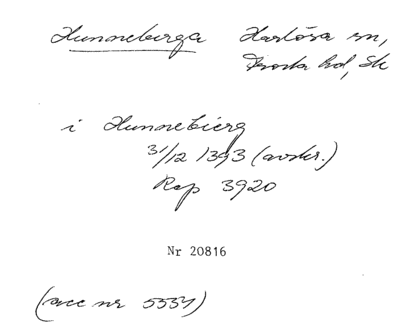 Hunneberga Harlösa sn,
Frosta hd, Sk
i Hunnebierg
31/12 1393 (avskr.)
Rep 3920
Nr 20816
(acc nr 5537)